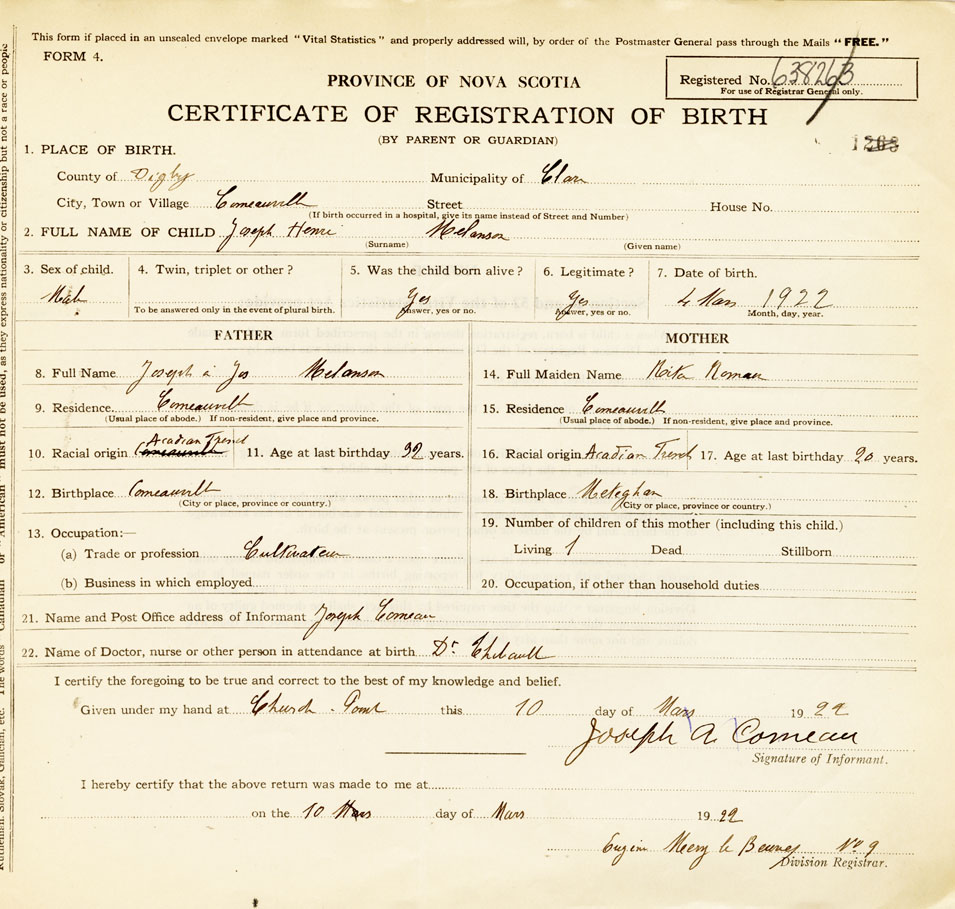 This form if placed in an unsealed envelope marked "Vital Statistics" and properly addressed will, by order of the Postmaster General pass through the Mails "FREE."
FORM 4.
PROVINCE OF NOVA SCOTIA
Registered No. 638263
For use of Registrar General only.
CERTIFICATE OF REGISTRATION OF BIRTH
(BY PARENT OR GUARDIAN)
1. PLACE OF BIRTH.
County of Digby Municipality of Clare
City, Town or Village Comeauville Street House No.
(If birth occurred in a hospital, give its name instead of Street and Number)
2. FULL NAME OF CHILD Joseph Henri Melanson
(Surname) (Given name)
3. Sex of child. 4. Twin, triplet or other? 5. Was the child born alive? 6. Legitimate? 7. Date of birth.
Male Yes Yes 4 Mars 1922
To be answered only in the event of plural birth. Answer, yes or no. Answer, yes or no. Month, day, year.
FATHER
8. Full Name Joseph à Jos Melanson
9. Residence Comeauville
(Usual place of abode.) If non-resident, give place and province.
10. Racial origin Acadian French 11. Age at last birthday 32 years.
12. Birthplace Comeauville
(City or place, province or country.)
13. Occupation:—
(a) Trade or profession Cultivateur
(b) Business in which employed
MOTHER
14. Full Maiden Name
15. Residence Comeauville
(Usual place of abode.) If non-resident, give place and province.
16. Racial origin Acadian French 17. Age at last birthday 20 years.
18. Birthplace Meteghan
(City or place, province or country.)
19. Number of children of this mother (including this child.)
Living 1 Dead Stillborn
20. Occupation, if other than household duties
21. Name and Post Office address of Informant Joseph Comeau
22. Name of Doctor, nurse or other person in attendance at birth Dr Thibault
I certify the foregoing to be true and correct to the best of my knowledge and belief.
Given under my hand at Church Point this 10 day of Mars 1922
Joseph A Comeau
Signature of Informant.
I hereby certify that the above return was made to me at
on the 10 Mars day of Mars 1922
No 9
Division Registrar.